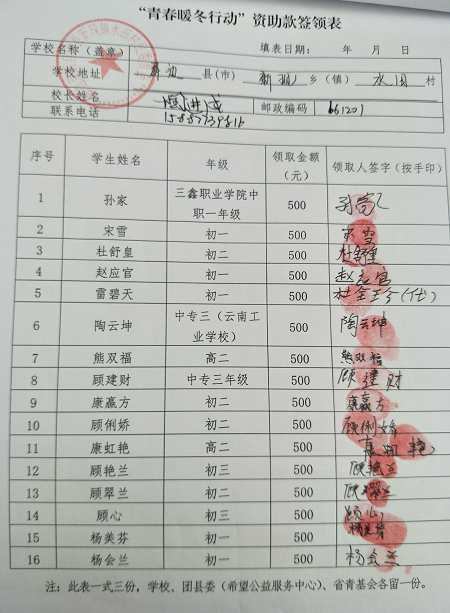 “青春暖冬行动”资助款签领表
学校名称（盖章） 填表日期： 年 月 日
学校地址 县（市） 新现 乡（镇） 水田 村
校长姓名 邮政编码 661201
联系电话
序号 学生姓名 年级 领取金额（元） 领取人签字（按手印）
1 孙家 三鑫职业学院中职一年级 500
2 宋雪 初一 500 宋雪
3 杜舒皇 初二 500 杜舒皇
4 赵应官 初一 500 赵应官
5 雷碧天 初一 500 （代）
6 陶云坤 中专三（云南工业学校） 500 陶云坤
7 熊双福 高二 500 熊双福
8 顾建财 中专三年级 500 顾建财
9 康赢方 初二 500 康赢方
10 顾俐娇 初二 500 顾俐娇
11 康虹艳 高二 500 康虹艳
12 顾艳兰 初三 500 顾艳兰
13 顾翠兰 初二 500 顾翠兰
14 顾心 初三 500 顾心
15 杨美芬 初一 500 杨美芬
16 杨会兰 初一 500 杨会兰
注：此表一式三份，学校、团县委（希望公益服务中心）、省青基会各留一份。